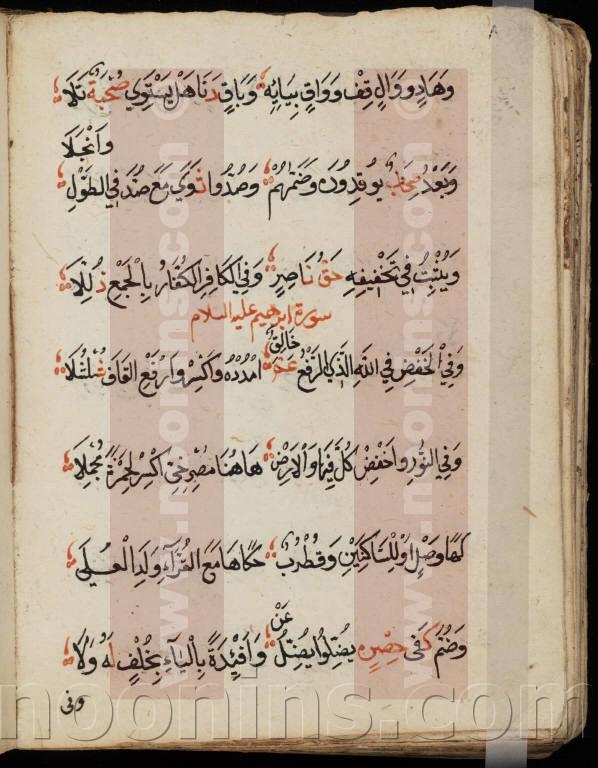 وَهَادٍ وَوَالٍ قِفْ وَوَاقٍ بِيَائِهِ وَبَاقٍ دَنَا هَلْ يَسْتَوِي صُحْبَةٌ تَلَا
وَانْجَلَا
وَبَعْدُ صِحَابٌ يُوقِدُونَ وَضَمُّهُمْ وَصُدُّوا ثَوَى مَعْ صُدَّ فِي الطَّوْلِ
وَيُثْبِتُ فِي تَخْفِيفِهِ حَقُّ نَاصِرٍ وَفِي الْكَافِرِ الْكُفَّارُ بِالْجَمْعِ ذُلِّلَا
سورة ابرهيم عليه السلام
خَالِقُ
وَفِي الْخَفْضِ فِي اللهِ الَّذِي الرَّفْعُ عَمَّ امْدُدْهُ وَاكْسِرْ وَارْفَعِ الْقَافَ شُلْشُلَا
وَفِي النُّورِ وَاخْفِضْ كُلَّ فِيهَا وَالْاَرْضَ هَاهُنَا مُصْرِخِيَّ اكْسِرْ لِحَمْزَةَ مُجْمِلَا
كَهَا وَصْلٍ اوْ لِلسَّاكِنَيْنِ وَقُطْرُبٌ حَكَاهَا مَعَ الْفَرَّآءِ وَلَدِ الْعُلَى
عَنْ
وَضُمَّ كَفَى حِصْنٍ يَضِلُّوا يَضِلَّ وَاَفْئِيدَةً بِالْيَآءِ بِخُلْفٍ لَهُ وَلَا
وفى
noonins.com
www.noonins.com
www.noonins.com
www.noonins.com